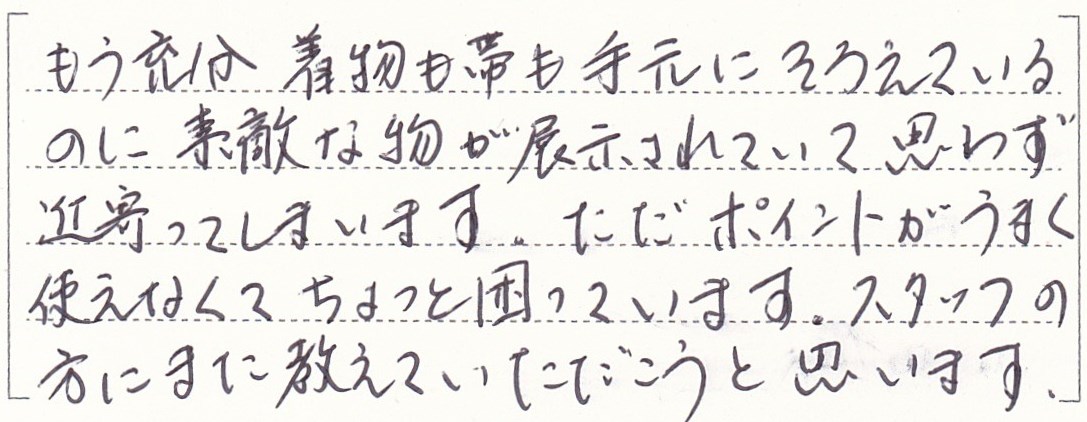 もう充分 着物も帯も手元にそろえている
のに 素敵な物が展示されていて思わず
近寄ってしまいます。ただポイントがうまく
使えなくてちょっと困っています。スタッフの
方にまた教えていただこうと思います、